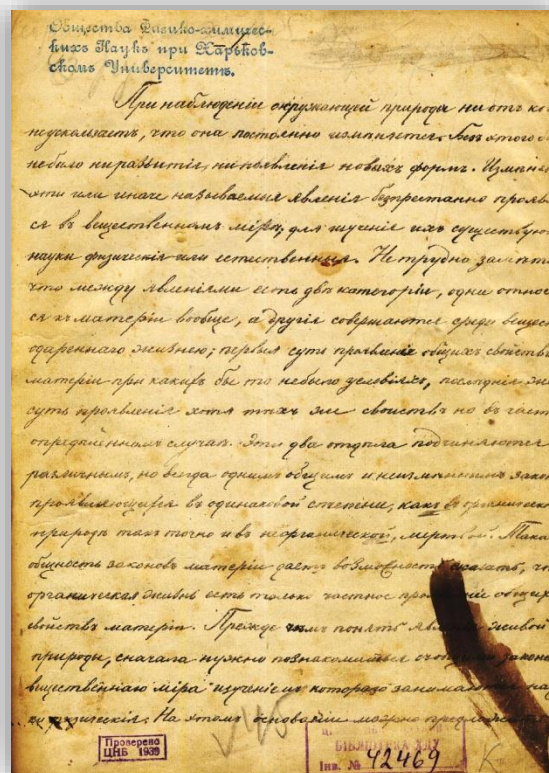 Общества Физико-химичес-
кихъ Наукъ при Харьков-
скомъ Университетѣ.
При наблюденіи окружающей природы ни отъ ко
неускользаетъ, что она постоянно измѣняется. Безъ этого
небыло ни развитія, ни появленія новыхъ формъ. Измѣне
эти или иначе называемыя явленія безпрестанно прояв
ся въ вещественномъ мірѣ; для изученія ихъ существую
науки физическія или естественныя. Нетрудно замѣт
что между явленіями есть двѣ категоріи, одни относ
ся къ матеріи вообще, а другія совершаются среди вещес
одареннаго жизнею; первыя суть проявленіе общихъ свойств
матеріи при какихъ бы то небыло условіяхъ, послѣднія же
суть проявленія хотя тѣхъ же свойствъ но въ част
опредѣленномъ случаѣ. Эти два отдѣла подчиняются
различнымъ, но всегда однимъ общимъ и неизмѣннымъ закон
проявляющимся въ одинаковой степени, какъ въ органическо
природѣ такъ точно и въ неорганической, мертвой. Така
общность законовъ матеріи даетъ возможность сказать, чт
органическая жизнь есть только частное проявленіе общихъ
свойствъ матеріи. Прежде чѣмъ понять явленія живой
природы, сначала нужно познакомиться съ общими закона
вещественнаго міра изученіемъ котораго занимаются на
физическія. На этомъ основаніи можно
Проверено
ЦНБ 1939
БІБЛІОТЕКА ХДУ
Інв. № 42469